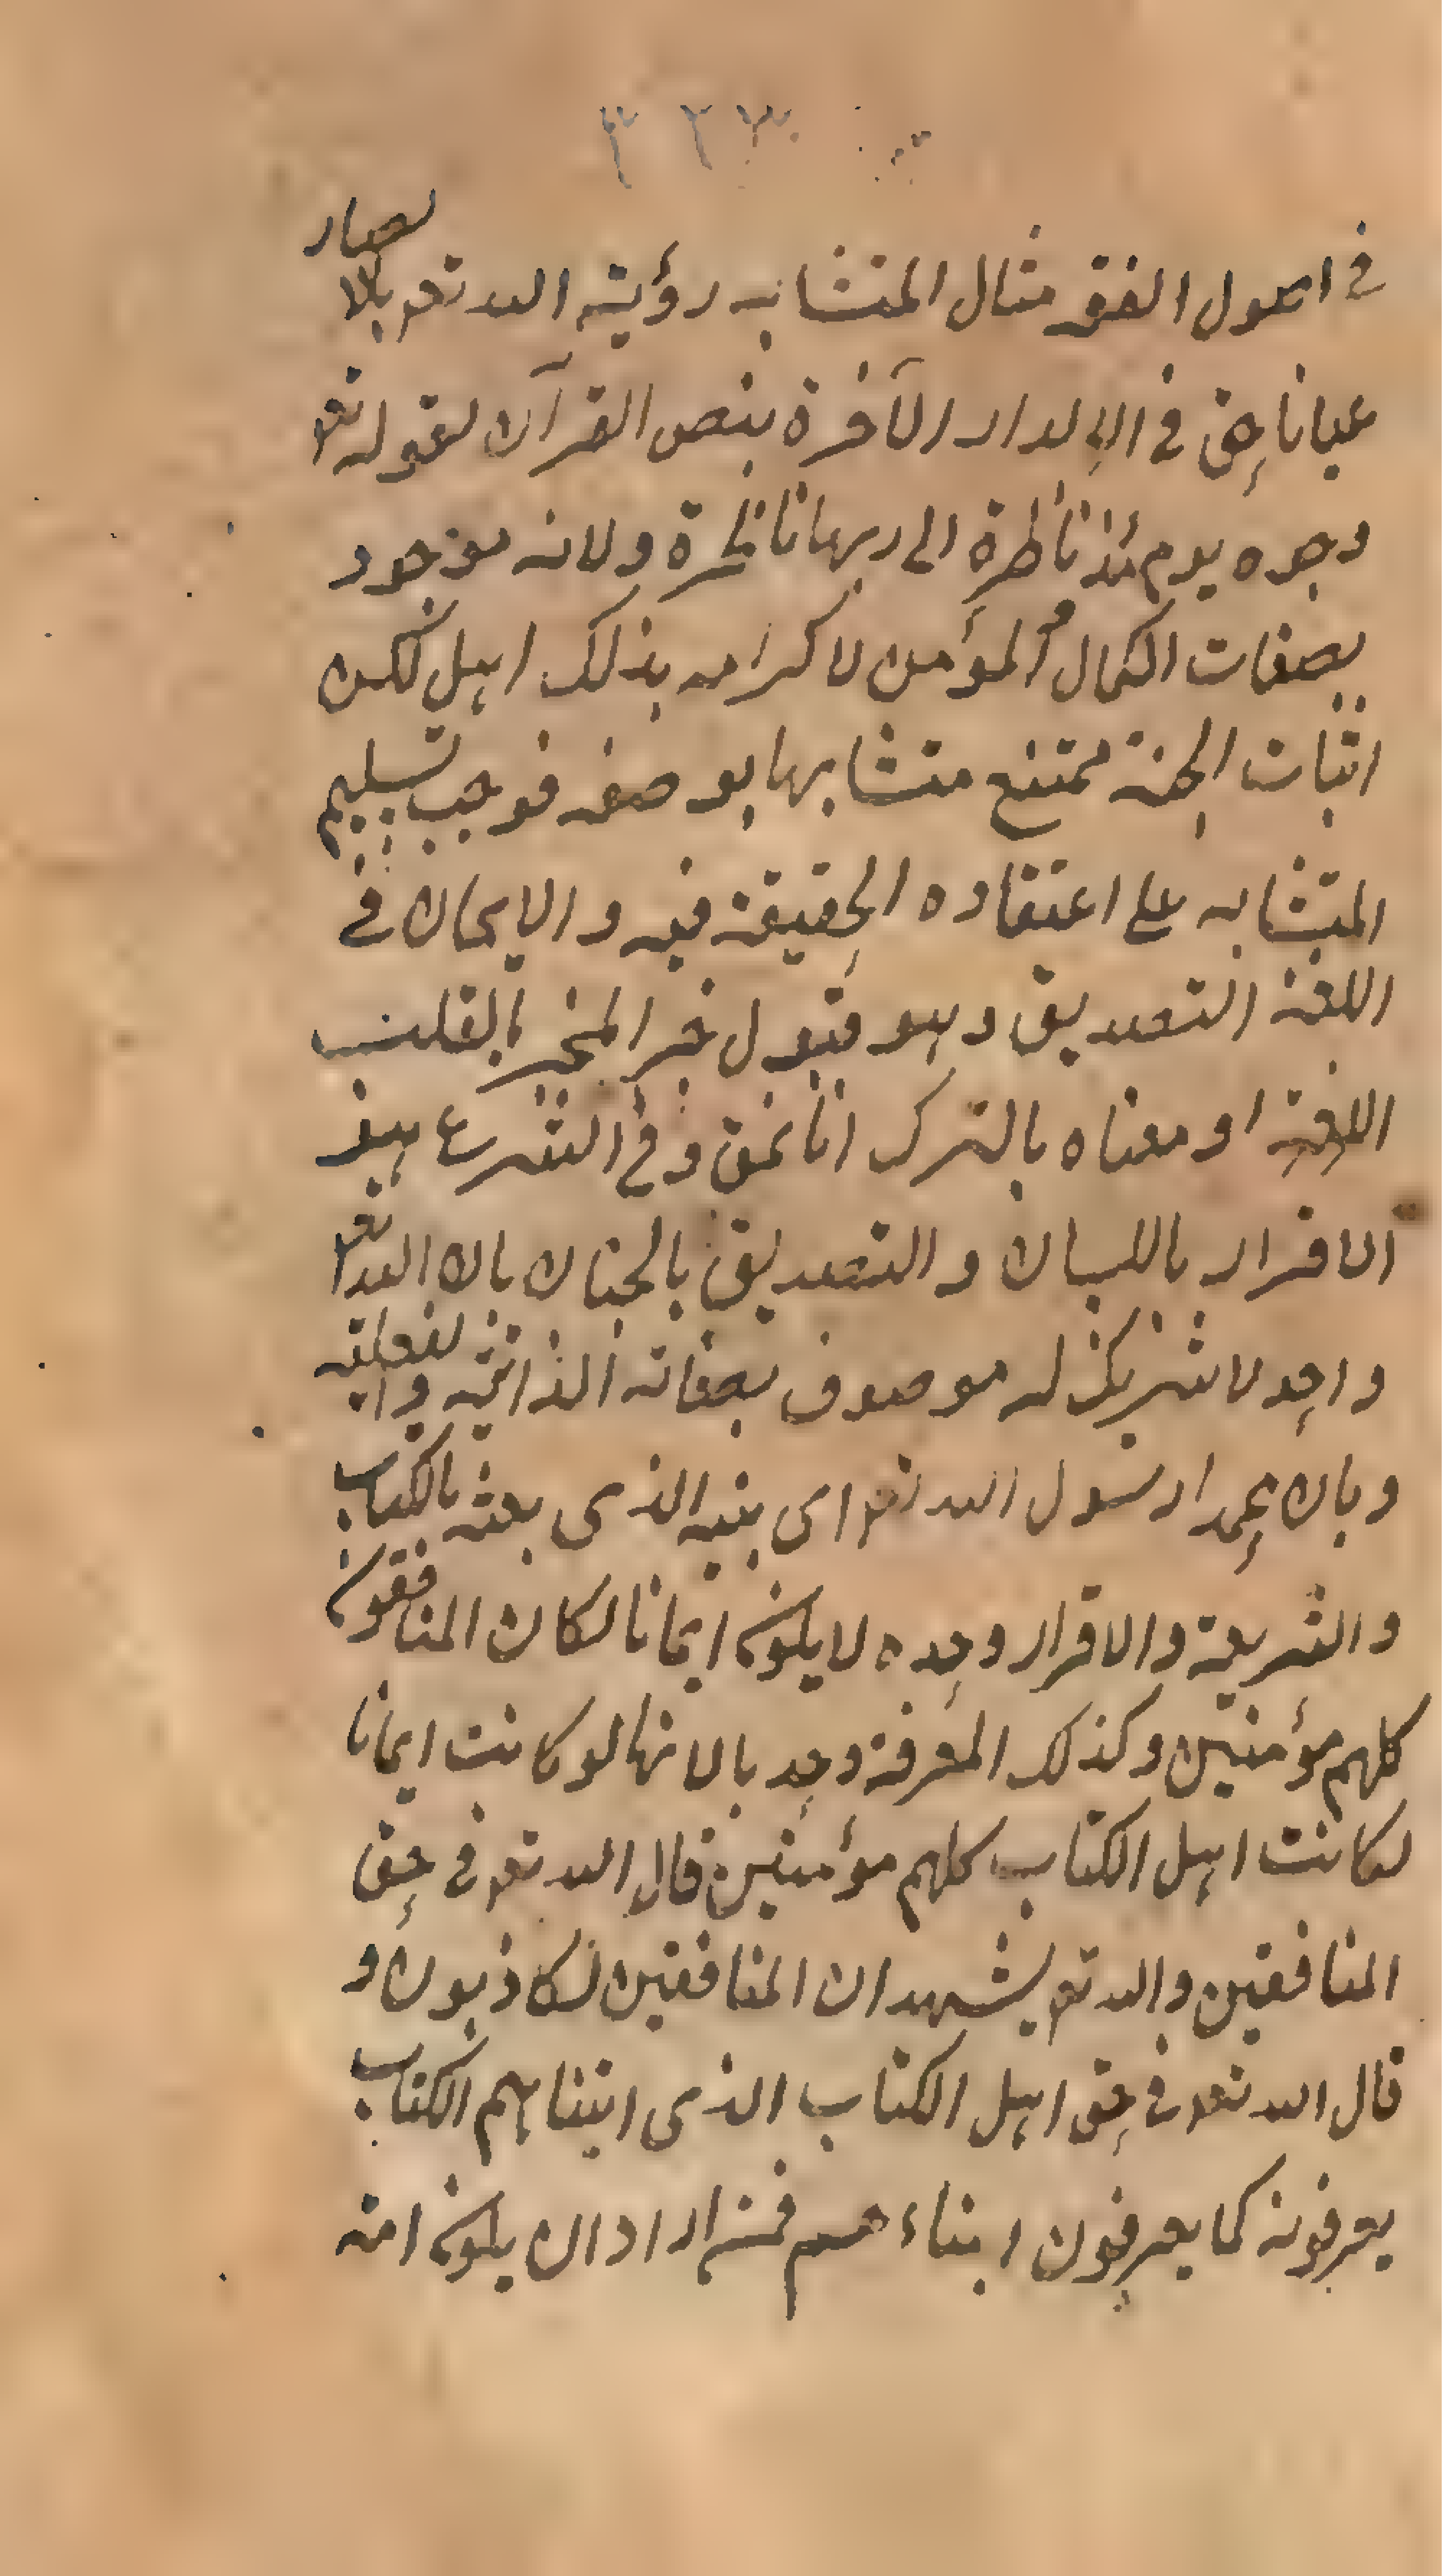 ٣٢٣
في اصول الفقه مثال المتشابه رؤية الله تعہ بالابصار
عيانا حق في الدار الآخرة بنص القرآن لقوله تعہ
وجوه يومئذ ناظرة الى ربها ناظرة ولانه موجود
بصفات الكمال والمؤمن لاكرامه بذلك اهل لكن
اثبات الجهة ممتنع متشابها بوصفه فوجب تسليم
المتشابه على اعتقاده الحقيقة فيه والايمان في
اللغة التصديق وهو قبول خبر المخبر بالقلب
اللغة او معناه بالترك اناىمق وفي الشرع هو
الاقرار باللسان والتصديق بالجنان بان الله تعہ
واحد لا شريك له موصوف بصفاته الذاتية والفعلية
وبان محمدا رسول الله تعہ اى نبيه الذى بعثه بالكتاب
والشريعة والاقرار وحده لا يكون ايمانا لكان المنافقون
كلهم مؤمنين وكذلك المعرفة وحدبالانها لو كانت ايمانا
لكانت اهل الكتاب كلهم مؤمنين قال الله تعہ في حق
المنافقين والله تعہ يشهد ان المنافقين لكاذبون و
قال الله تعہ في حق اهل الكتاب الذى اتيناهم الكتاب
يعرفونه كما يعرفون ابناءهم فمن اراد ان يكون امنه